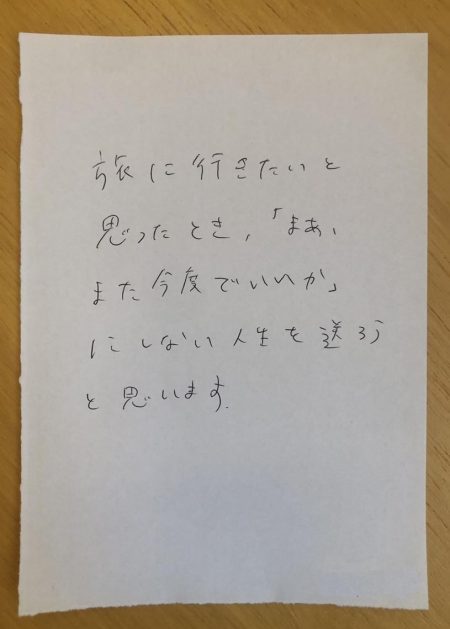 旅に行きたいと
思ったとき、「まあ、
また今度でいいか」
にしない人生を送ろう
と思います.